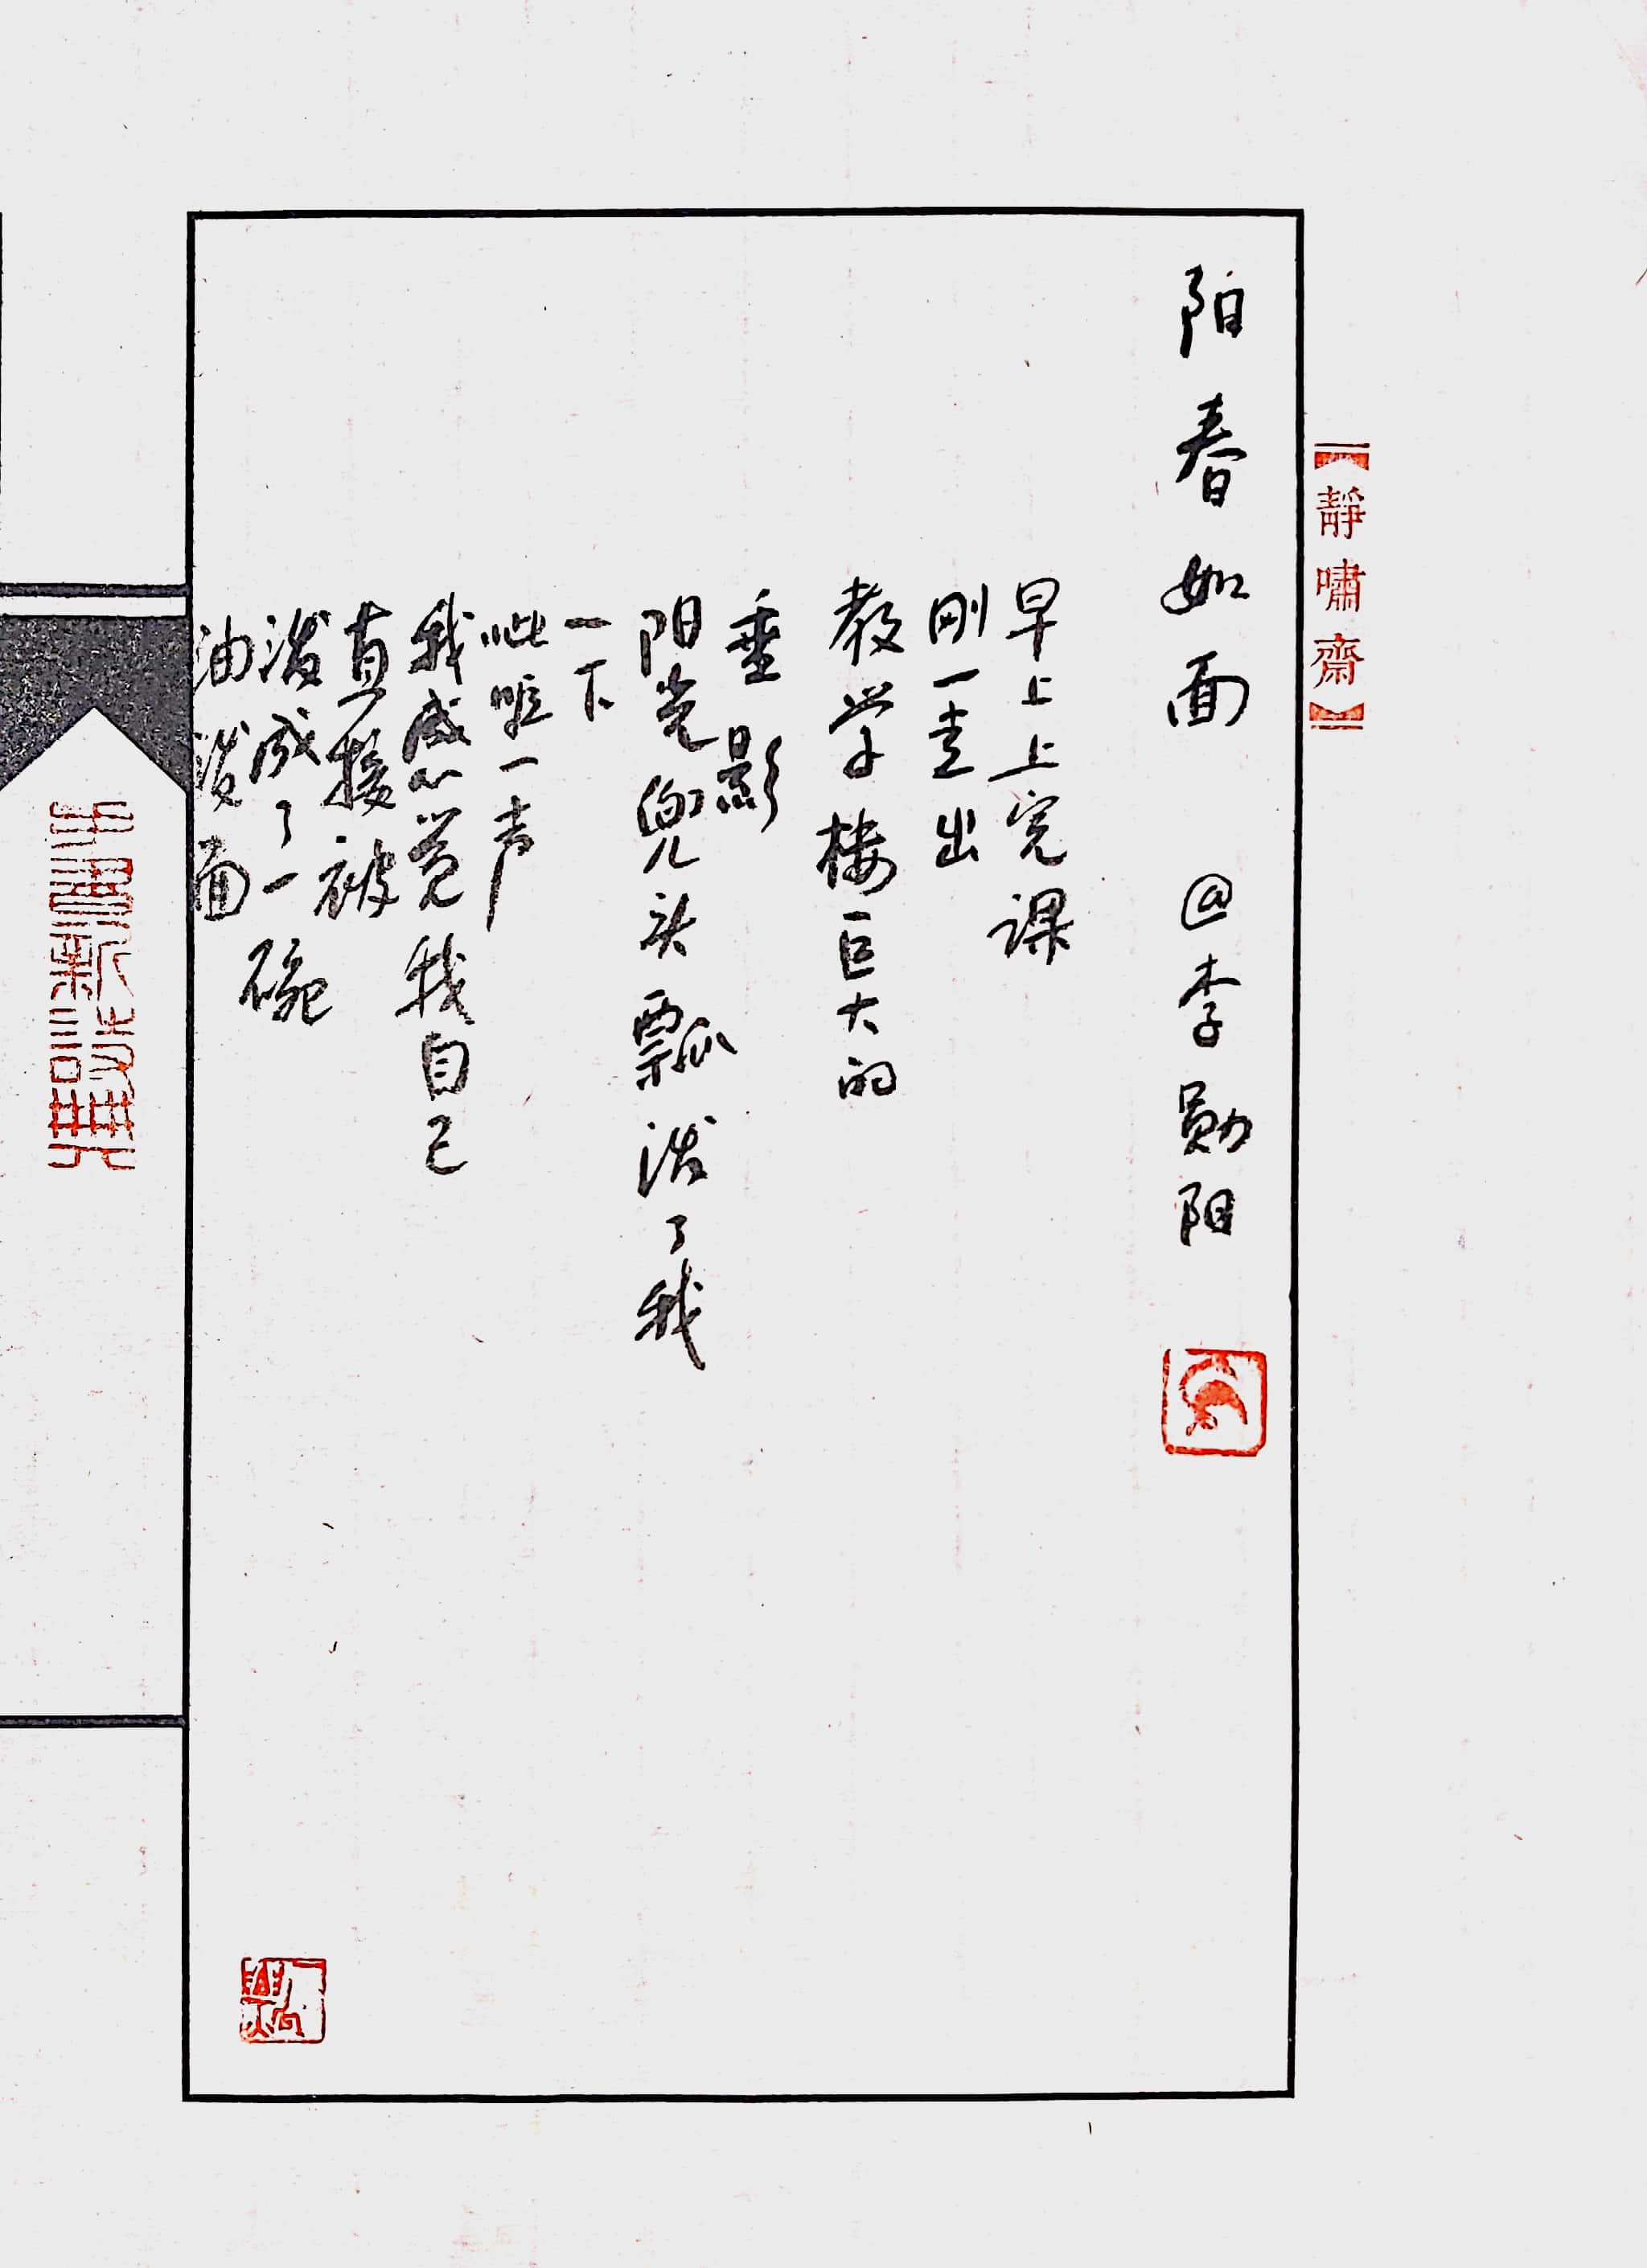 【靜嘯齋】
阳春如面 @李勋阳
早上上完课
刚一走出
教学楼巨大的
垂影
阳光兜头瓢泼了我
一下
呲啦一声
我感觉我自己
直接被
泼成了一碗
油泼面